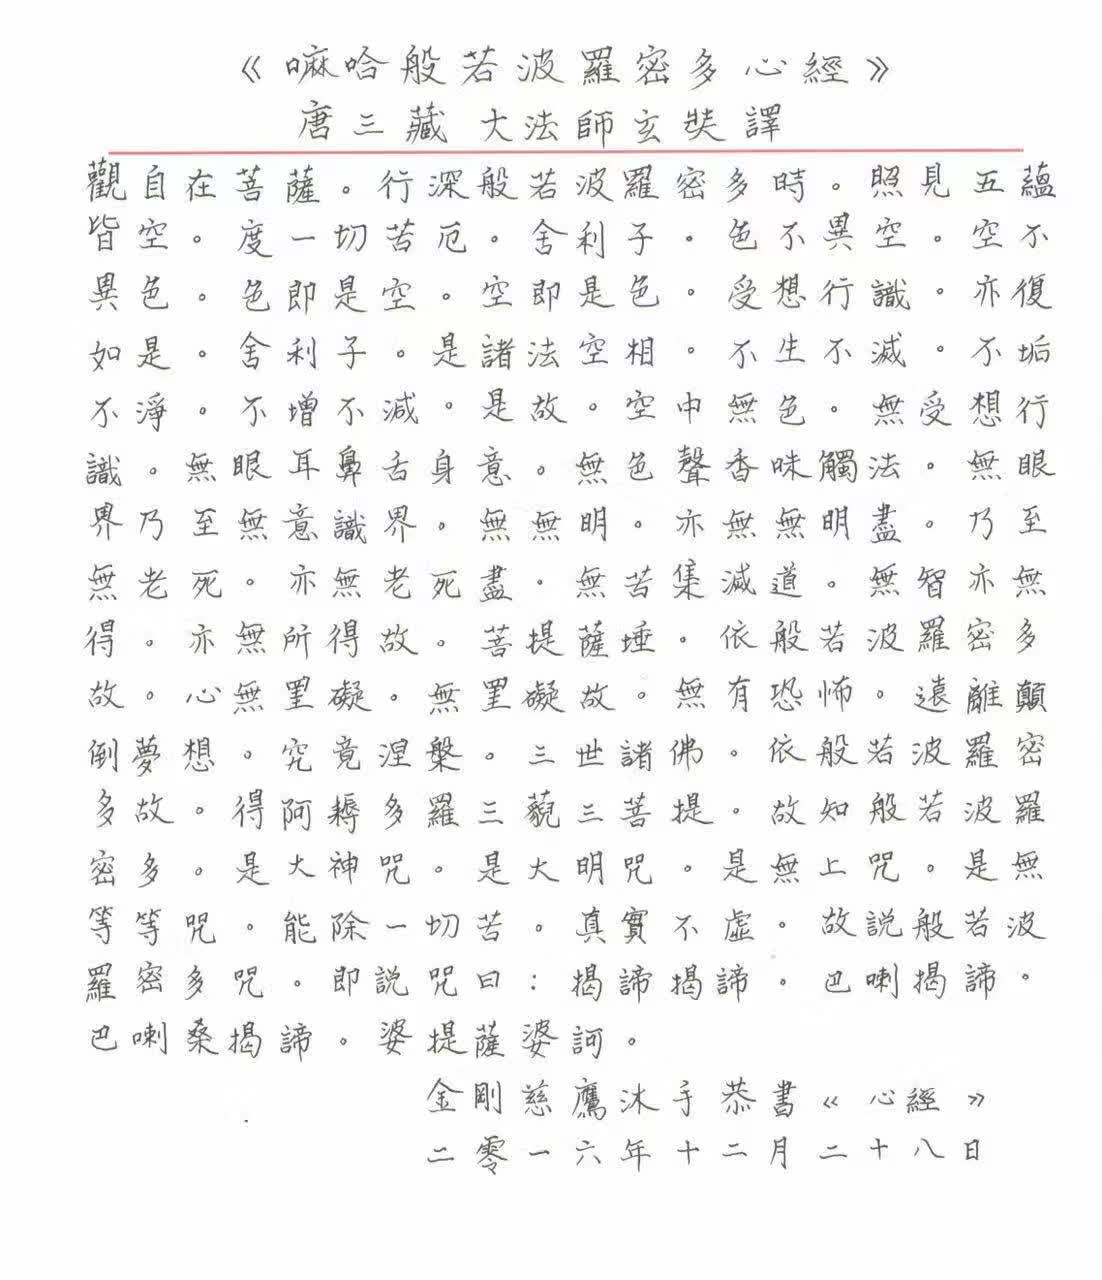 《嘛哈般若波羅密多心經》
唐三藏 大法師玄奘譯
觀自在菩薩。行深般若波羅密多時。照見五蘊
皆空。度一切苦厄。舍利子。色不異空。空不
異色。色即是空。空即是色。受想行識。亦復
如是。舍利子。是諸法空相。不生不滅。不垢
不淨。不增不減。是故。空中無色。無受想行
識。無眼耳鼻舌身意。無色聲香味觸法。無眼
界乃至無意識界。無無明。亦無無明盡。乃至
無老死。亦無老死盡。無苦集滅道。無智亦無
得。亦無所得故。菩提薩埵。依般若波羅密多
故。心無罣礙。無罣礙故。無有恐怖。遠離顛
倒夢想。究竟涅槃。三世諸佛。依般若波羅密
多故。得阿耨多羅三藐三菩提。故知般若波羅
密多。是大神咒。是大明咒。是無上咒。是無
等等咒。能除一切苦。真實不虛。故説般若波
羅密多咒。即説咒曰：揭諦揭諦。巴喇揭諦。
巴喇桑揭諦。婆提薩婆訶。
金剛慈鷹沐手恭書《心經》
二零一六年十二月二十八日